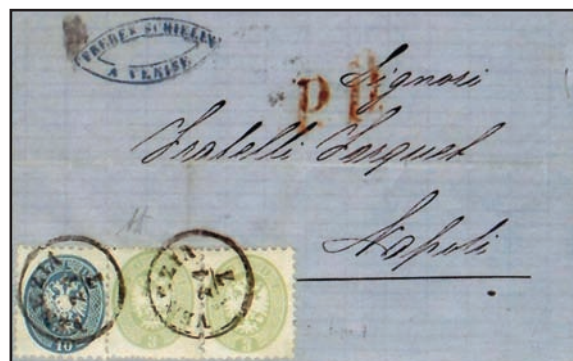 FREDER SCHIELIN
A VENISE
P.D.
Signori
Fratelli
Napoli
VENEZIA
VENEZIA
10
3
3